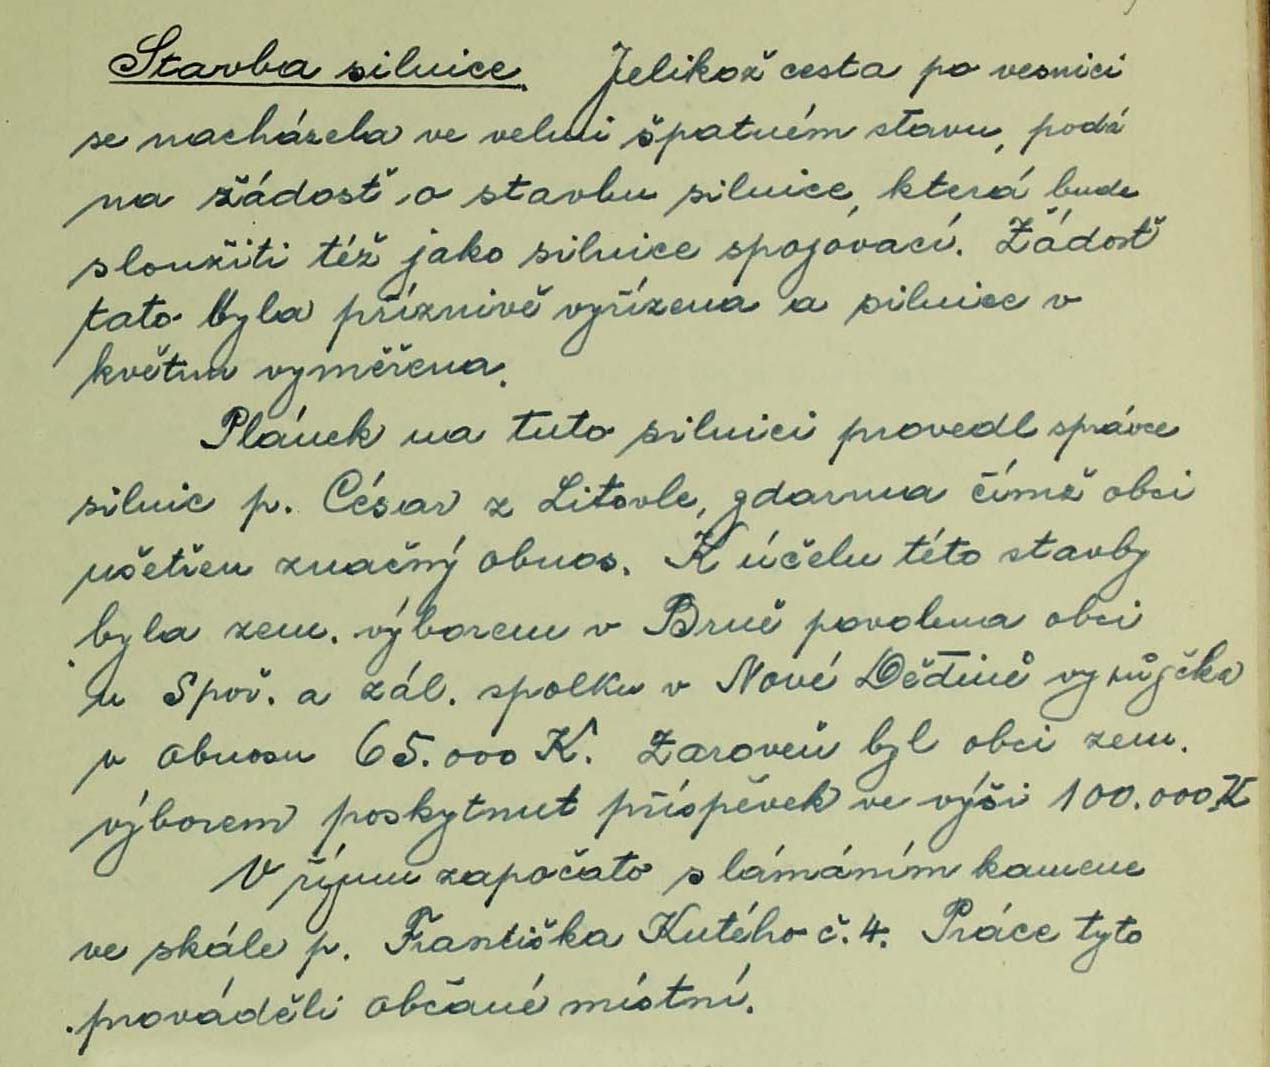 Stavba silnice. Jelikož cesta po vesnici
se nacházela ve velmi špatném stavu, podá
na žádosť o stavbu silnice, která bude
sloužiti též jako silnice spojovací. Žádosť
tato byla příznivě vyřízena a silnice v
květnu vyměřena.
Plánek na tuto silnici provedl správce
silnic p. César z Litovle, zdarma čímž obci
ušetřen značný obnos. K účelu této stavby
byla zem. výborem v Brně povolena obci
u Spoř. a zál. spolku v Nové Dědině vyzůjčka
v obnosu 65.000 K. Zároveň byl obci zem.
výborem poskytnut příspěvek ve výši 100.000 K
V říjnu započato s lámáním kamene
ve skále p. Františka Kutého č. 4. Práce tyto
prováděli občané místní.